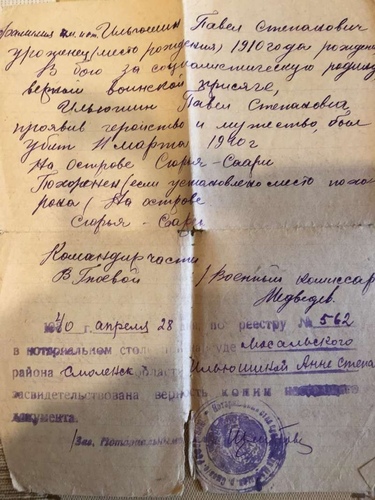 фамилия им. иот. Ильюшин Павел Степанович
уроженец (место рождения) 1910 года рожден
В бою за социалистическую родину
верный воинской присяге,
Ильюшин Павел Степанович,
проявив геройство и мужество, был
убит 11 марта 1940 г
На острове Сюрья-Саари
Похоронен (если установлено место похо
рона / На острове
Сюрья-Саари
Командир части
В. Гневой / Военный комиссар
Медведев.
1940 г. апреля 28 дня, по реестру № 562
в нотариальном столе суде Масальского
района Смоленск области Ильюшиной Анне Степа
засвидетельствована верность копии
документа.
/Зав. Нотариальным